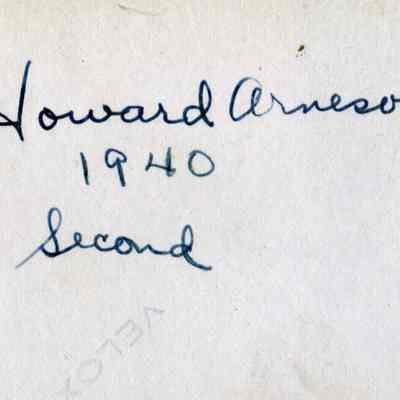 Howard Arneso
1940
Second
VELOX